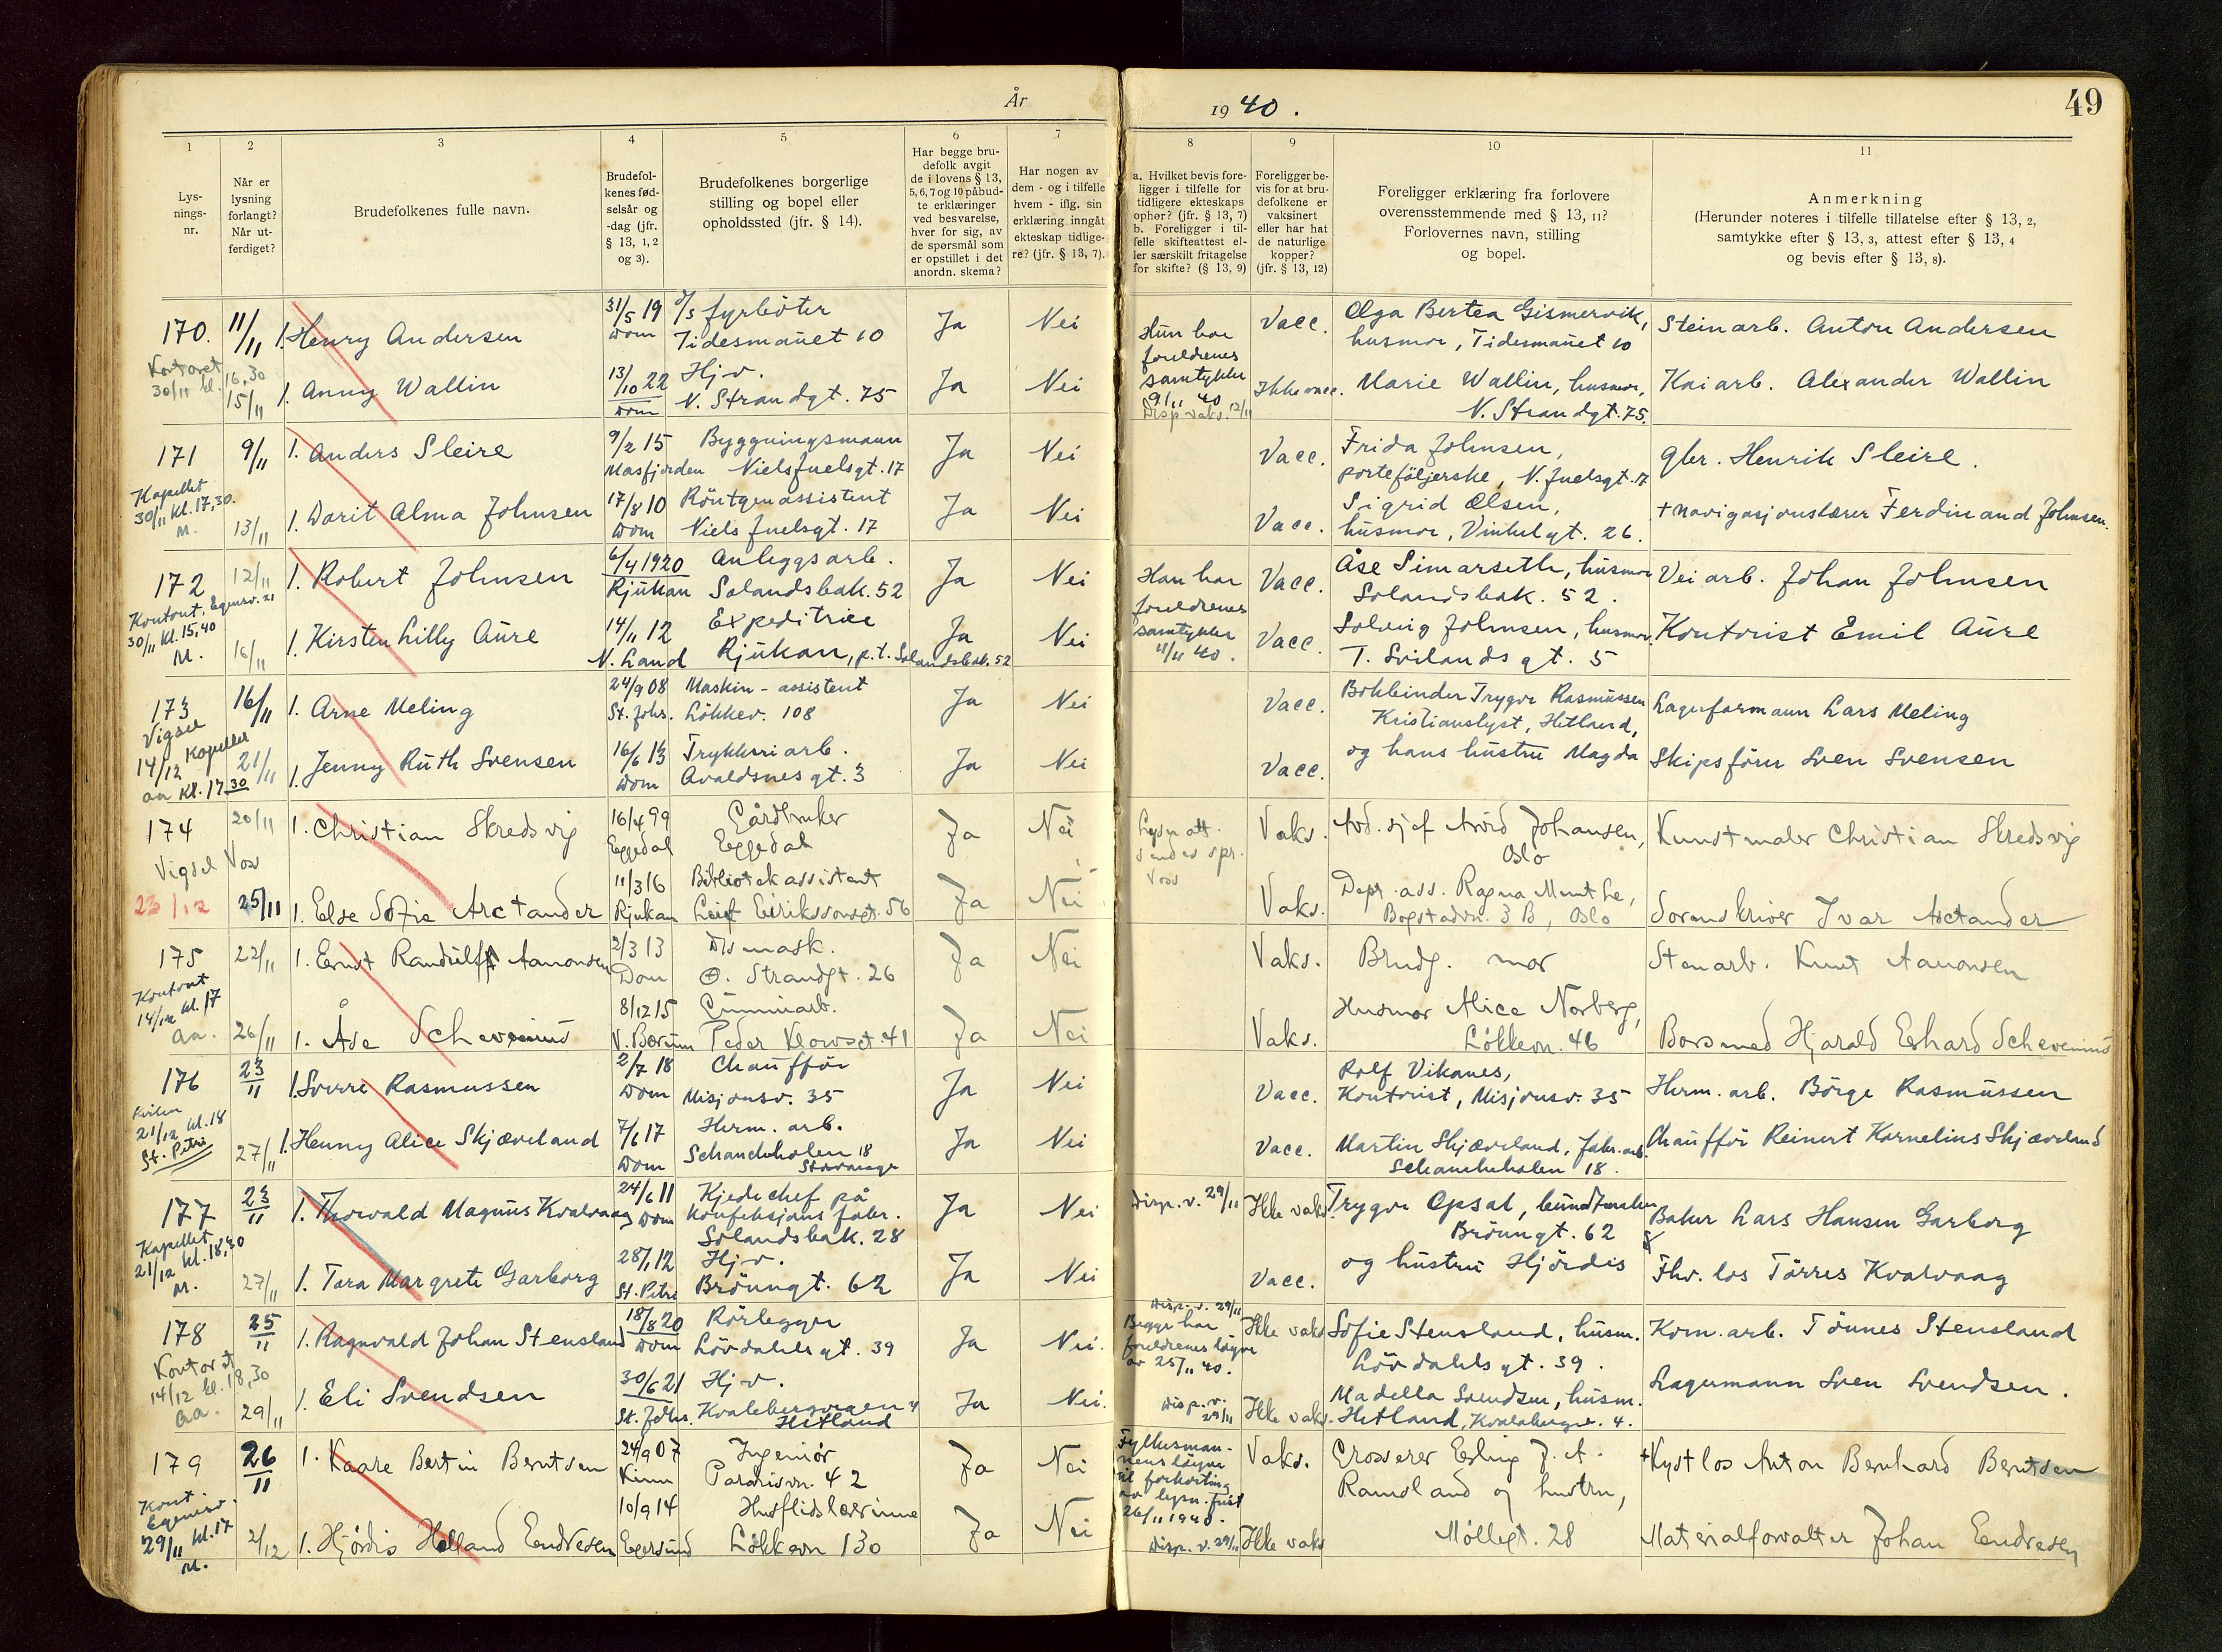 År
1940.
49
1
2
3
4
5
6
7
8
9
10
11
Lys-
nings-
nr.
Når er
lysning
forlangt?
Når ut-
ferdiget?
Brudefolkenes fulle navn.
Brudefol-
kenes fød-
selsår og
-dag (jfr.
§ 13, 1, 2
og 3).
Brudefolkenes borgerlige
stilling og bopel eller
opholdssted (jfr. § 14).
Har begge bru-
defolk avgit
de i lovens § 13,
5, 6, 7 og 10 påbud-
te erklæringer
ved besvarelse,
hver for sig, av
de spørsmål som
er opstillet i det
anordn. skema?
Har nogen av
dem - og i tilfelle
hvem - iflg. sin
erklæring inngått
ekteskap tidlige-
re? (jfr. § 13, 7).
a. Hvilket bevis fore-
ligger i tilfelle for
tidligere ekteskaps
ophør? (jfr. § 13, 7)
b. Foreligger i til-
felle skifteattest el-
ler særskilt fritagelse
for skifte? (§ 13, 9)
Foreligger be-
vis for at bru-
defolkene er
vaksinert
eller har hat
de naturlige
kopper?
(jfr. § 13, 12)
Foreligger erklæring fra forlovere
overensstemmende med § 13, 11?
Forlovernes navn, stilling
og bopel.
Anmerkning
(Herunder noteres i tilfelle tillatelse efter § 13, 2,
samtykke efter § 13, 3, attest efter § 13, 4
og bevis efter § 13, 8).
170. 11/11 1. Henry Andersen 31/5 19 Dom d/s fyrböter Tidesmanet 10 Ja Nei
Hun har foreldrenes samtykke 9/11 40 Disp. vaks. 12/11
Vacc. Olga Bertea Gismervik, husmor, Tidesmanet 10 Steinarb. Anton Andersen
Kontoret 30/11 kl. 16,30
15/11 1. Anny Wallin 13/10 22 Dom Hj. v. N. Strandgt. 75 Ja Nei
Ikke vacc. Marie Wallin, husmor, N. Strandgt. 75. Kaiarb. Alexander Wallin
171 9/11 1. Anders Sleire 9/2 15 Masfjorden Byggningsmann Niels Juelsgt. 17 Ja Nei
Vacc. Frida Johnsen, portefõljerske, N. Juelsgt. 17 gbr. Henrik Sleire.
Kapellet 30/11 kl. 17,30. M.
13/11 1. Dorit Alma Johnsen 17/8 10 Dom Röntgenassistent Niels Juelsgt. 17 Ja Nei
Vacc. Sigrid Olsen, husmor, Vinkelgt. 26. + Navigasjonslærer Ferdinand Johnsen.
172 12/11 1. Robert Johnsen 6/4 1920 Rjukan Anleggsarb. Solandsbak. 52 Ja Nei
Han har foreldrenes samtykke 11/11 40.
Vacc. Åse Simarseth, husmor Solandsbak. 52. Veiarb. Johan Johnsen
Kontoret, Egenesv. 21 30/11 kl. 15,40 M.
16/11 1. Kirsten Lilly Aure 14/11 12 N. Land Expeditrice Rjukan, p.t. Solandsbak. 52 Ja Nei
Vacc. Solveig Johnsen, husmor. T. Svilandsgt. 5 Kontorist Emil Aure
173 16/11 1. Arne Meling 24/9 08 St. Johs. Maskin-assistent Lökkev. 108 Ja Nei
Vacc. Bokbinder Trygve Rasmussen Kristianslyst, Hetland, Lagerformann Lars Meling
Vigsel 14/12 Kapellet aa kl. 17.30
21/11 1. Jenny Ruth Svensen 16/6 13 Dom Trykkeriarb. Avaldsnesgt. 3 Ja Nei
Vacc. og hans hustru Magda Skipsförer Sven Svensen
174 20/11 1. Christian Skredsvig 16/4 99 Eggedal Gårdbruker Eggedal Ja Nei
Lysn. att. sendes spr. Voss
Vaks. Avd. sjef Arvid Johansen, Oslo Kunstmaler Christian Skredsvig
Vigsel Voss 23/12
25/11 1. Else Sofie Arctander 11/3 16 Rjukan Bibliotekassistent Leif Eirikssonsgt. 56 Ja Nei
Vaks. Dept. ass. Ragna Munthe, Bogstadvn. 3 B, Oslo Sorenskriver Ivar Arctander
175 22/11 1. Ernst Randulff Aamonsen 2/3 13 Dom D/s mask. Ø. Strandgt. 26 Ja Nei
Vaks. Brudg. mor Stenarb. Knut Aamonsen
Kontoret 14/12 kl. 17 aa.
26/11 1. Åse Schevenius 8/12 15 V. Bærum Gummiarb. Peder Klowsgt. 41 Ja Nei
Vaks. Husmor Alice Norberg, Løkkevn. 46 Børsmed Hjarald Erhard Schevenius
176 23/11 1. Sverre Rasmussen 2/7 18 Dom Chauffør Misjonsv. 35 Ja Nei
Vacc. Rolf Vikanes, Kontorist, Misjonsv. 35 Herm. arb. Börge Rasmussen
21/12 kl. 18 St. Petri
27/11 1. Henny Alice Skjæveland 7/6 17 Dom Herm. arb. Schanckeholen 18 Stavanger Ja Nei
Vacc. Martin Skjæveland, fabr. arb. Schanckeholen 18. Chauffør Reinert Kornelius Skjæveland
177 23/11 1. Thorvald Magnus Kvalvaag 24/6 11 Dom Kjedechef på konfeksjons fabr. Solandsbak. 28 Ja Nei
Disp. v. 29/11 Ikke vaks. Trygve Opsal, Brönngt. 62 Baker Lars Hansen Garborg
Kapellet 21/12 kl. 18,30 M.
27/11 1. Tora Margrete Garborg 28/1 12 St. Petri Hj. v. Brönngt. 62 Ja Nei
Vacc. og hustru Hjördis Fhv. los Törres Kvalvaag
178 25/11 1. Ragnvald Johan Stensland 18/8 20 Dom Rörlegger Lövdahlsgt. 39 Ja Nei.
Disp. v. 29/11 Begge har foreldrenes løyve av 25/11 40.
Ikke vaks Sofie Stensland, husm. Lövdahlsgt. 39. Kom. arb. Tönnes Stensland
Kontoret 14/12 kl. 18,30 aa.
29/11 1. Eli Svendsen 30/6 21 St. Johs. Hj. v. Kvalebergveien 4 Hetland Ja Nei.
Disp. v. 29/11 Ikke vaks. Madella Svendsen, husm. Hetland, Kvalebergv. 4. Lagermann Sven Svendsen.
179 26/11 1. Kaare Bertin Berntsen 24/9 07 Kinn Ingeniør Paradisvn. 42 Ja Nei
Fylkesman-nens løyve til forkorting av lysn. frist 26/11 1940.
Vaks. Grosserer Erling J. A. Ramsland og hustru, + Kystlos Anton Bernhard Berntsen
Kont. Egenesv. 29/11 kl. 17 M.
2/12 1. Hjørdis Holland Endresen 10/9 14 Egersund Husflidslærerinne Løkkevn 130 Ja Nei
Disp. v. 29/11 Ikke vaks Møllegt. 28 Materialforvalter Johan Endresen